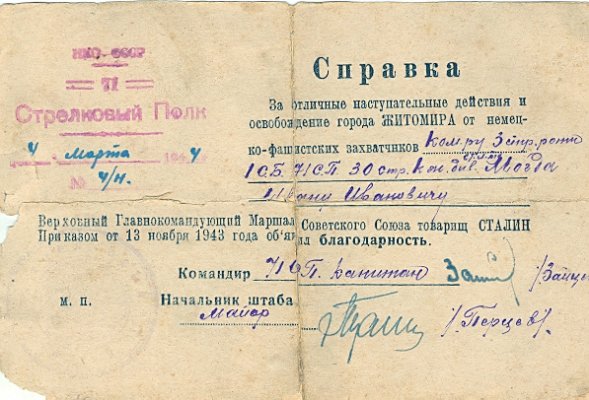 НКО-СССР
71
Стрелковый Полк
4 марта 1944
№ ч/н.
Справка
За отличные наступательные действия и
освобождение города ЖИТОМИРА от немец-
ко-фашистских захватчиков ком-ру 3 стр. роты
1 СБ. 71 СП 30 стр. див.
Ивану Ивановичу
Верховный Главнокомандующий Маршал Советского Союза товарищ СТАЛИН
Приказом от 13 ноября 1943 года об'явил благодарность.
Командир 71 СП. капитан /Зайцев
м. п. Начальник штаба
майор /Перцев/.